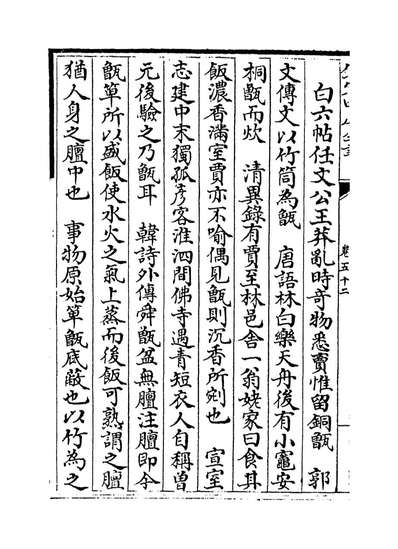 白六帖任文公王莽亂時竒物悉賣惟留銅甑　郭
文傳文以竹筒為甑　唐語林白樂天舟後有小竈安
桐甑而炊　清異錄有賈至林邑舍一翁姥家日食其
飯濃香滿室賈亦不喻偶見甑則沉香所剜也　宣室
志建中末獨孤彦客淮泗間佛寺遇青短衣人自稱曽
元後驗之乃甑耳　韓詩外傳舜甑盆無膻注膻即今
甑箄所以盛飯使水火之氣上蒸而後飯可熟謂之膻
猶人身之膻中也　事物原始箄甑底蔽也以竹為之
卷五十二